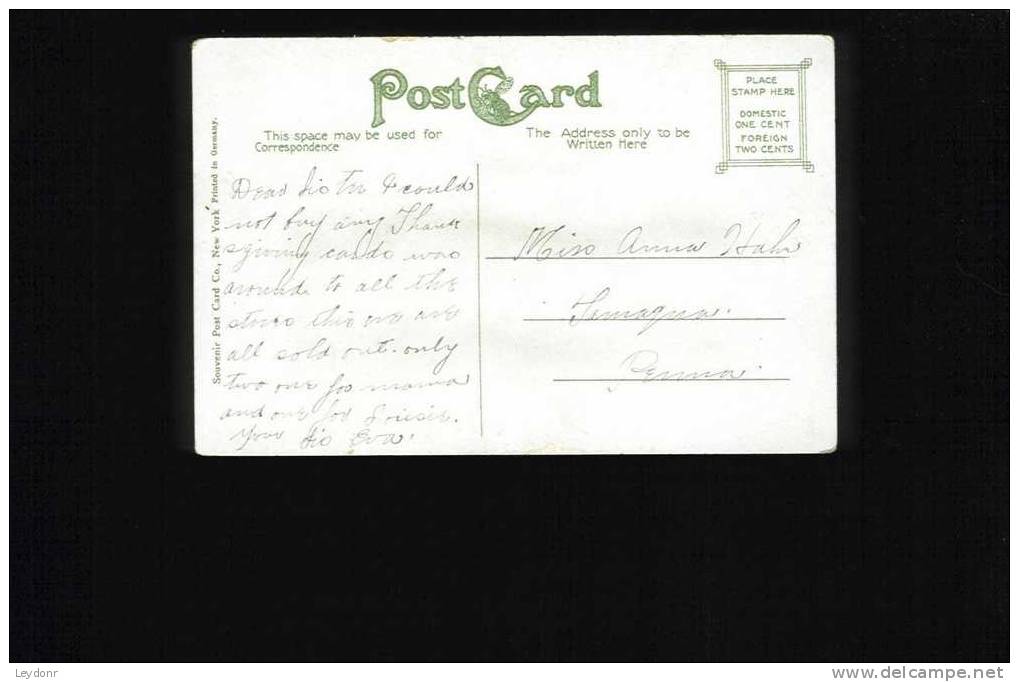 Post Card
This space may be used for
Correspondence
The Address only to be
Written Here
PLACE
STAMP HERE
DOMESTIC
ONE CENT
FOREIGN
TWO CENTS
Souvenir Post Card Co., New York Printed in Germany.
Dear Sis I could
not buy any Thank
sgiving cards was
around to all the
stores this eve are
all sold out. only
two one for mama
and one for
Your Sis Eva.
Miss Anna Hahn
Tamaqua.
Penna.
Leydonr
delcampe.net